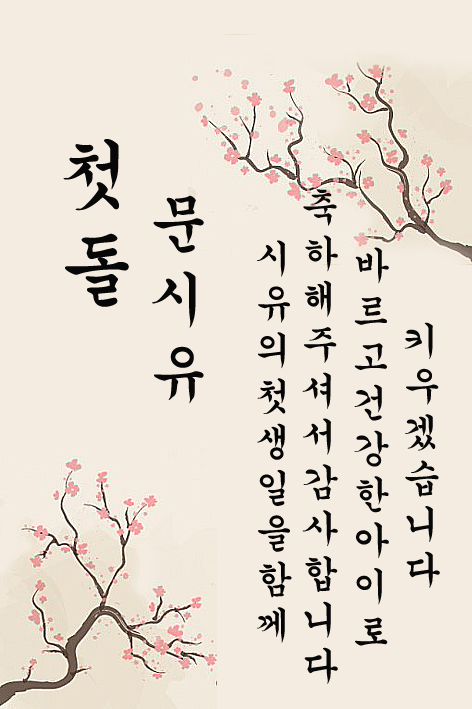 첫돌
문시유
시유의첫생일을함께
축하해주셔서감사합니다
바르고건강한아이로
키우겠습니다